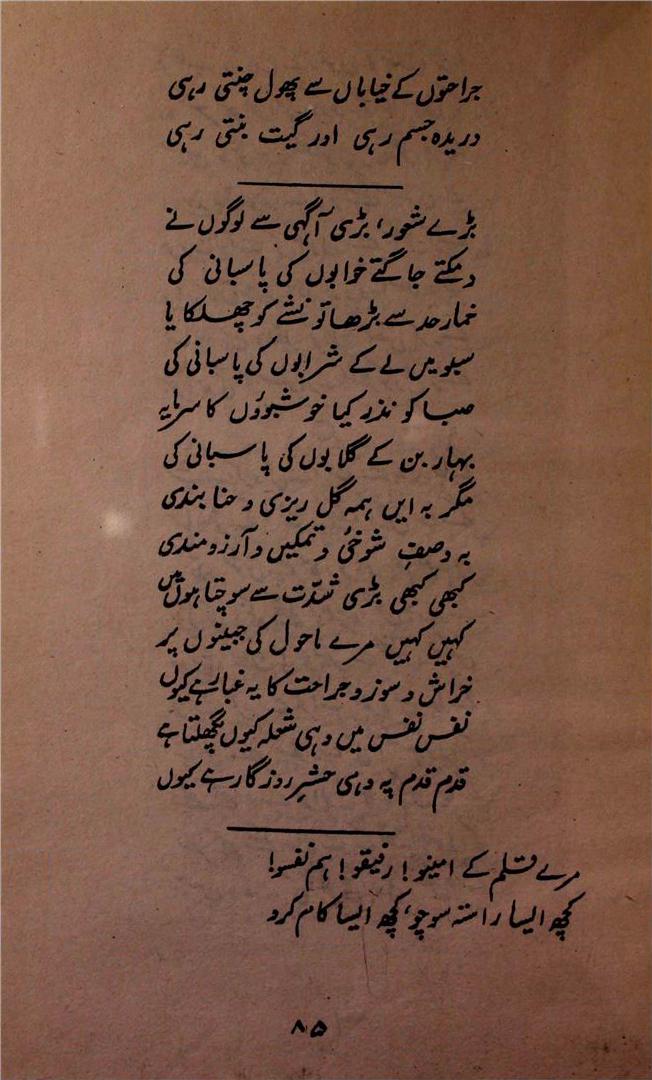 جراحتوں کے خیاباں سے پھول چنتی رہی
دریدہ جسم رہی اور گیت بنتی رہی
بڑے شعور، بڑی آگہی سے لوگوں نے
دمکتے جاگتے خوابوں کی پاسبانی کی
خمار حد سے بڑھا تو نشے کو چھلکایا
سبو میں لے کے شرابوں کی پاسبانی کی
صبا کو نذر کیا خوشبوؤں کا سرمایہ
بہار بن کے گلابوں کی پاسبانی کی
مگر بہ ایں ہمہ گل ریزی و حنا بندی
بہ وصفِ شوخیٔ و تمکیں و آرزو مندی
کبھی کبھی بڑی شدّت سے سوچتا ہوں میں
کہیں کہیں مرے ماحول کی جبینوں پر
خراش و سوز و جراحت کا یہ غبار ہے کیوں
نفس نفس میں وہی شعلہ کیوں پگھلتا ہے
قدم قدم پہ وہی حشرِ روزگار ہے کیوں
مرے قلم کے امینو! رفیقو! ہم نفسو!
کچھ ایسا راستہ سوچو، کچھ ایسا کام کرو
۸۵